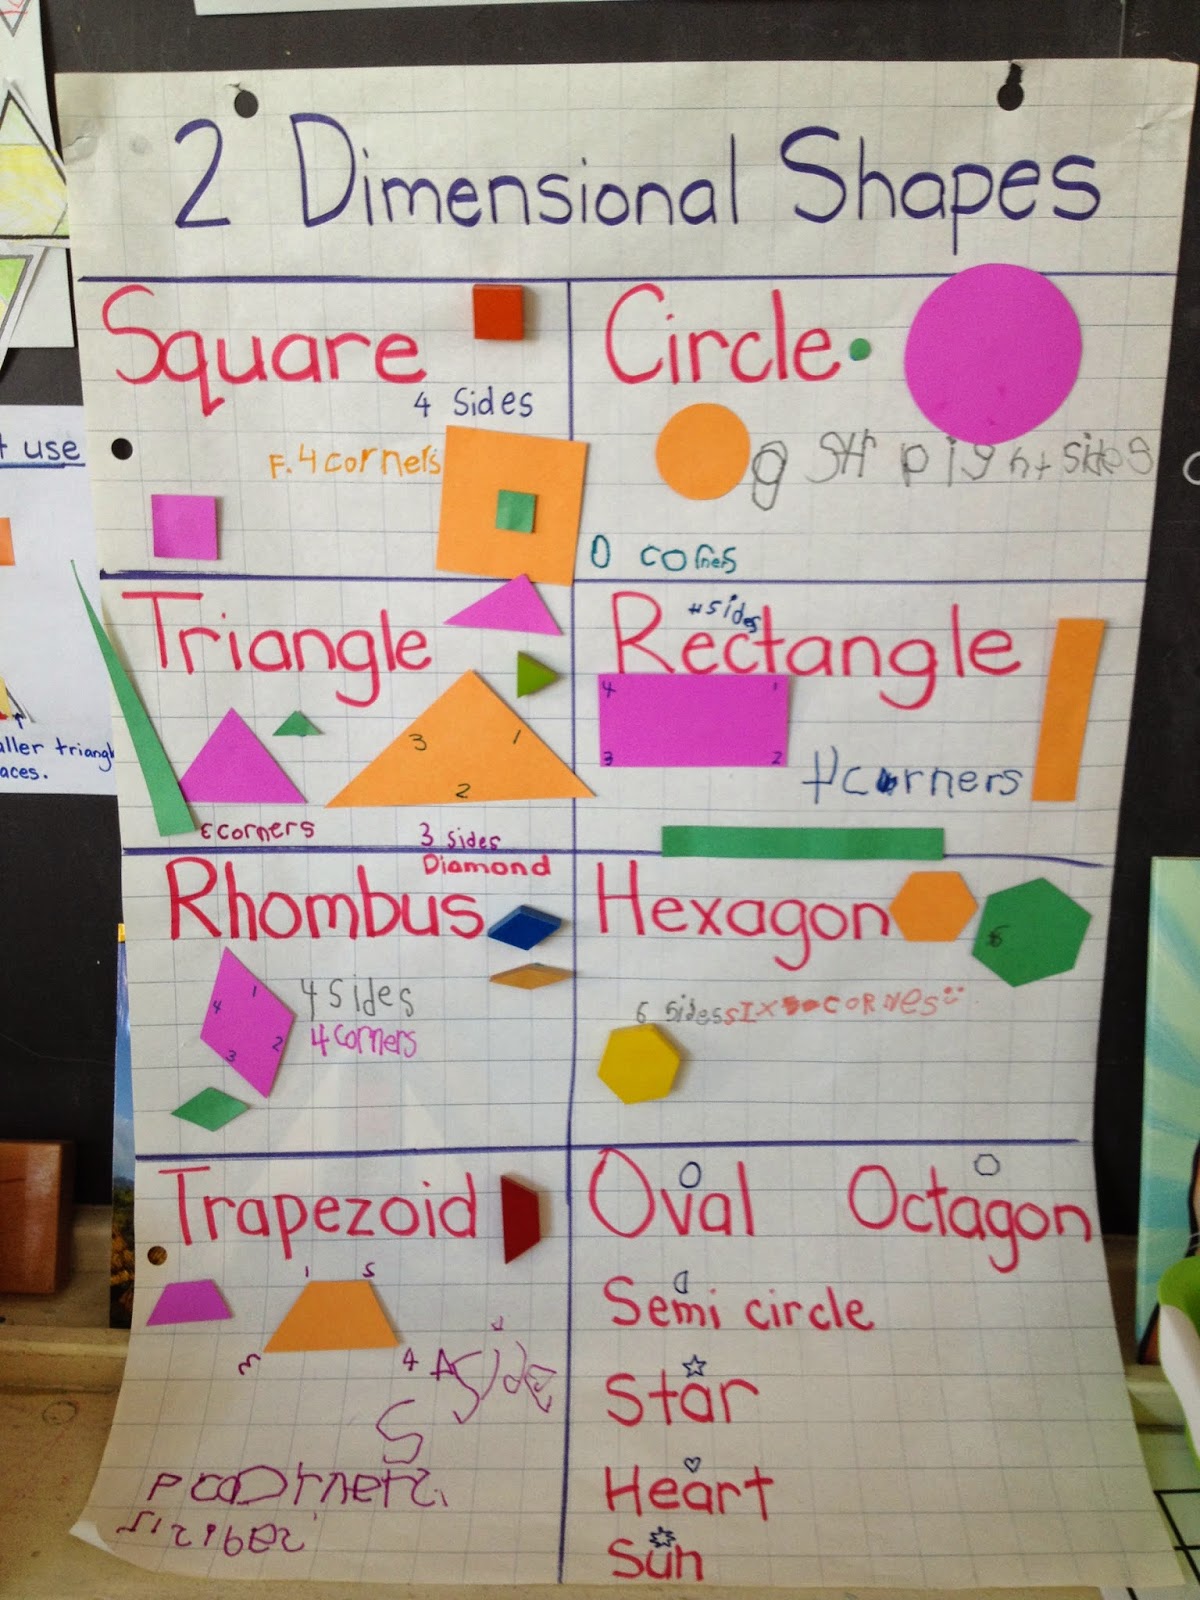 2 Dimensional Shapes
Square
4 Sides
F. 4 corners
Circle
0 corners
Triangle
3
1
2
corners
3 Sides
Rectangle
4 sides
4
1
3
2
4 corners
Rhombus
Diamond
4
1
2
3
4 sides
4 corners
Hexagon
6
6 sides
SIX CORNES
Trapezoid
1
4
Oval
Octagon
Semi circle
Star
Heart
Sun
use
aller triangl
aces.